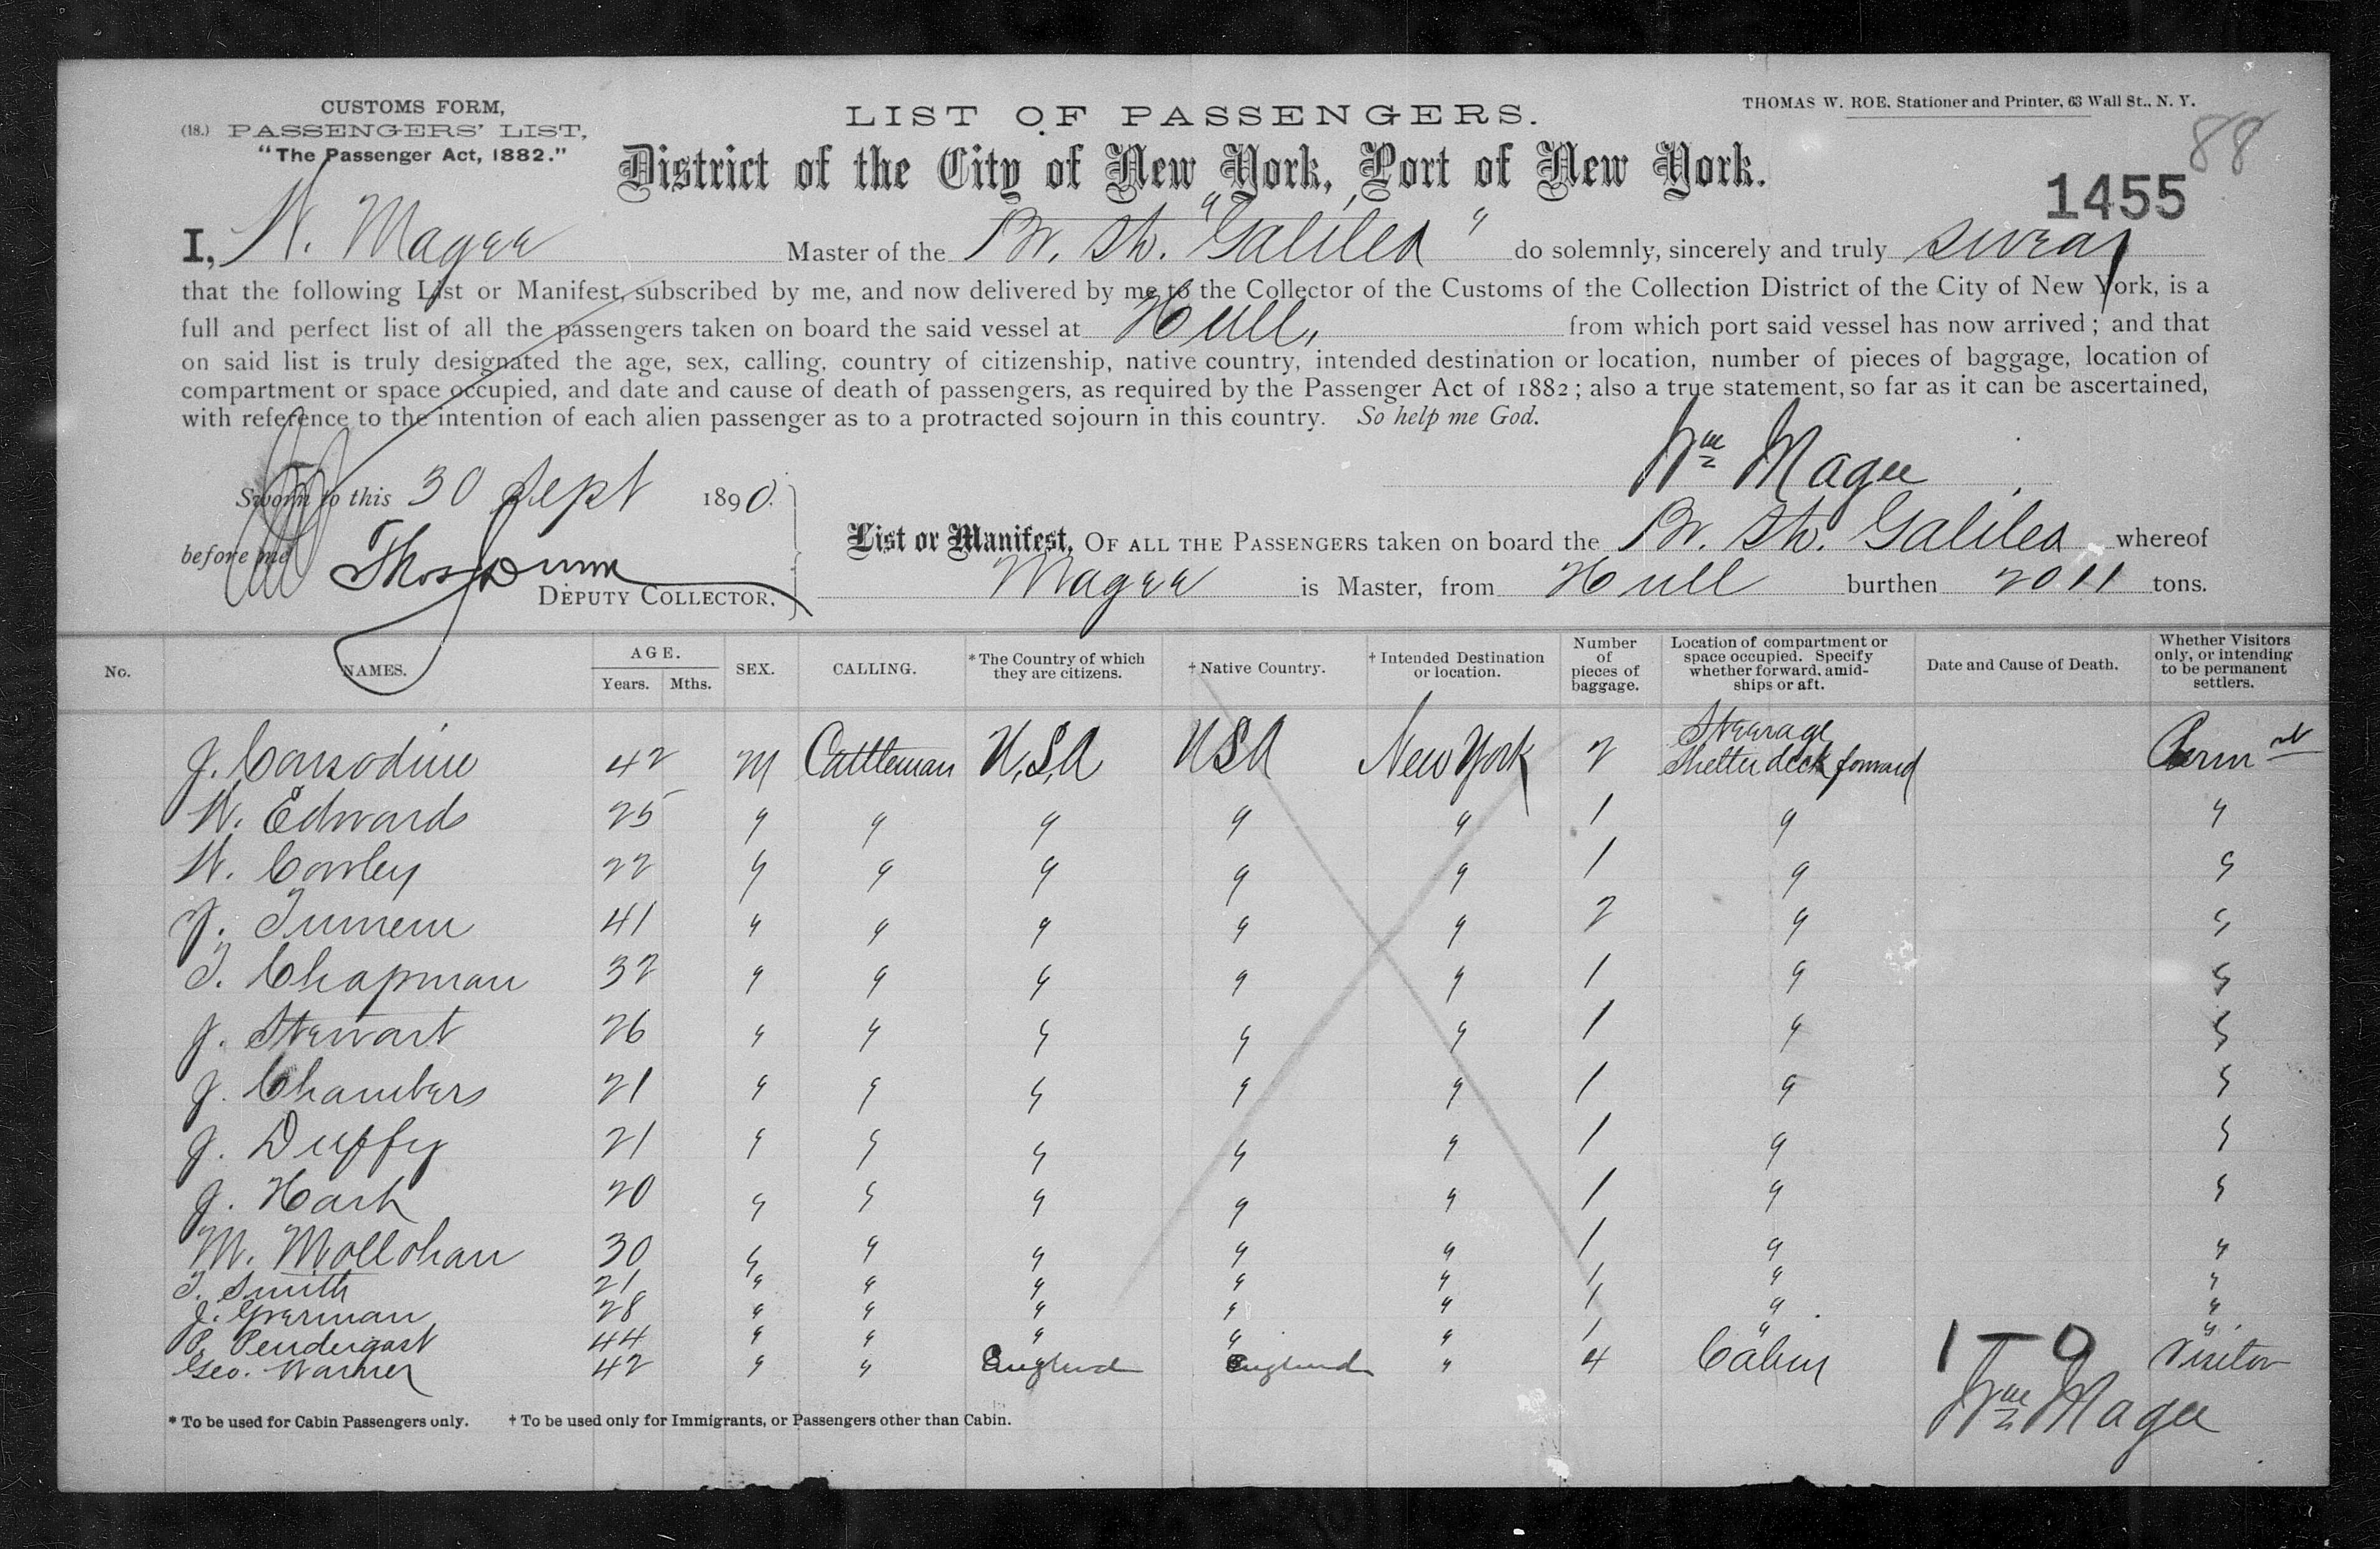 CUSTOMS FORM,
(18.) PASSENGERS' LIST,
"The Passenger Act, 1882."
LIST OF PASSENGERS.
THOMAS W. ROE, Stationer and Printer, 63 Wall St., N. Y.
88
District of the City of New York, Port of New York.
1455
I, W. Magee Master of the Br. Str. "Galileo" do solemnly, sincerely and truly swear
that the following List or Manifest, subscribed by me, and now delivered by me to the Collector of the Customs of the Collection District of the City of New York, is a
full and perfect list of all the passengers taken on board the said vessel at Hull, from which port said vessel has now arrived; and that
on said list is truly designated the age, sex, calling, country of citizenship, native country, intended destination or location, number of pieces of baggage, location of
compartment or space occupied, and date and cause of death of passengers, as required by the Passenger Act of 1882; also a true statement, so far as it can be ascertained,
with reference to the intention of each alien passenger as to a protracted sojourn in this country. So help me God.
Wm Magee
Sworn to this 30 Sept 1890.
before me Thos Dunn
DEPUTY COLLECTOR.
List or Manifest, OF ALL THE PASSENGERS taken on board the Br. Str. Galileo whereof
Magee is Master, from Hull burthen 2011 tons.
No. NAMES. AGE. Years. Mths. SEX. CALLING. *The Country of which they are citizens. †Native Country. †Intended Destination or location. Number of pieces of baggage. Location of compartment or space occupied. Specify whether forward, amidships or aft. Date and Cause of Death. Whether Visitors only, or intending to be permanent settlers.
J. 42 M Cattleman U.S.A USA New York 2 Steerage Shelter deck forward Permnt
W. Edwards 25 " " " " " 1 " "
W. Cowley 22 " " " " " 1 " "
J. 41 " " " " " 2 " "
T. Chapman 32 " " " " " 1 " "
J. Stewart 26 " " " " " 1 " "
J. Chambers 21 " " " " " 1 " "
J. Duffy 21 " " " " " 1 " "
J. 20 " " " " " 1 " "
M. Mollohan 30 " " " " " 1 " "
T. Smith 21 " " " " " 1 " "
J. German 28 " " " " " 1 " "
P. Pendergast 44 " " " " " 1 " "
Geo. Warner 42 " " England England " 4 Cabin 1-0 Visitor
Wm Magee
* To be used for Cabin Passengers only. † To be used only for Immigrants, or Passengers other than Cabin.